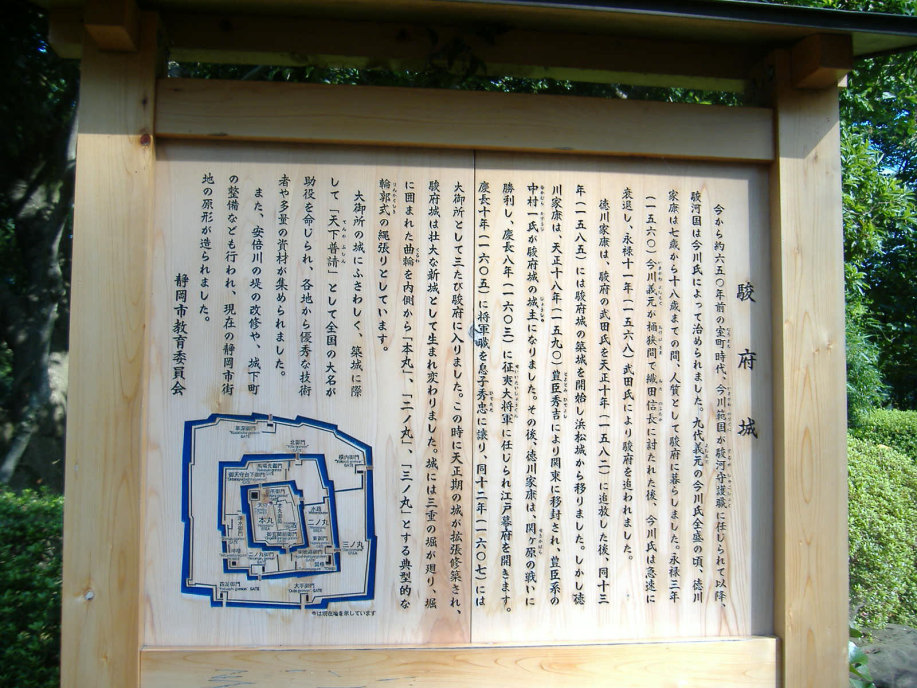 駿府城
今から約六五〇年前の室町時代、今川範国が駿河守護職に任じられて以降、
駿河国は今川氏によって治められました。九代義元の今川氏全盛の頃、徳川
家康は七歳から十八歳までの間、人質として駿府に暮らしました。永禄三年
(一五六〇)今川義元が桶狭間で織田信長に討たれた後、今川氏は急速に
衰退し、永禄十一年(一五六八)武田氏により駿府を追われました。
徳川家康は、駿府の武田氏を天正十年(一五八二)に追放した後、同十三
年(一五八五)には駿府城の築城を開始し浜松城から移りました。しかし徳
川家康は、天正十八年(一五九〇)豊臣秀吉により関東に移封され、豊臣系の
中村一氏が駿府城の城主になりました。その後、徳川家康は、関ヶ原の戦いに
勝利し、慶長八年(一六〇三)に征夷大将軍に任じられ江戸幕府を開きます。
慶長十年(一六〇五)に将軍職を息子秀忠に譲り、同十二年(一六〇七)には
大御所として三たび駿府に入りました。この時に天正期の城が拡張修築され、
駿府城は壮大な新城として生まれ変わりました。城には三重の堀が廻り、堀
に囲まれた曲輪を内側から「本丸」、「二ノ丸」、「三ノ丸」とする典型的な
輪郭式の縄張りとしています。
大御所の城にふさわしく、築城に際
して「天下普請」として全国の大名が
助役を命じられ、各地から優秀な技術
者や多量の資材が集められました。
また、安倍川の堤の改修や、城下町
の整備なども行われ、現在の静岡市街
地の原形が造られました。
静岡市教育委員会
草深御門
北御門
横内御門
本丸
二ノ丸
三ノ丸
東御門
四足御門
大手御門
は現在地を示しています